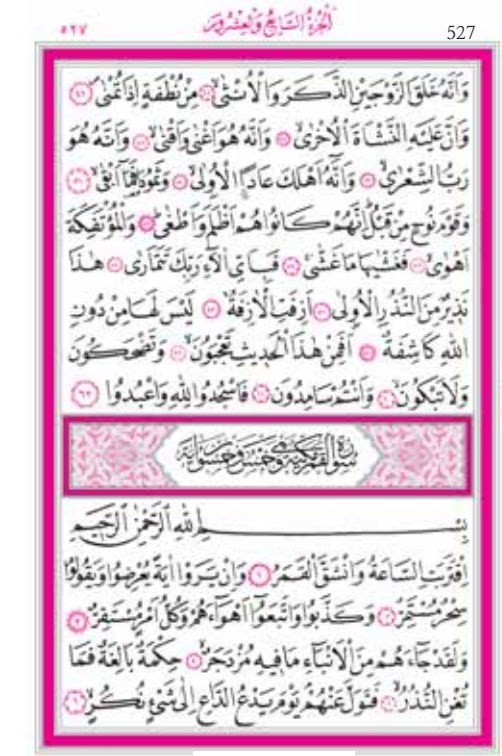 ٥٢٧ الجزء السابع والعشرون 527
وَاَنَّهُ خَلَقَ الزَّوْجَيْنِ الذَّكَرَ وَالْاُنْثٰىۙ ﴿٤٥﴾ مِنْ نُطْفَةٍ اِذَا تُمْنٰىۖ ﴿٤٦﴾
وَاَنَّ عَلَيْهِ النَّشْاَةَ الْاُخْرٰىۙ ﴿٤٧﴾ وَاَنَّهُ هُوَ اَغْنٰى وَاَقْنٰىۙ ﴿٤٨﴾ وَاَنَّهُ هُوَ
رَبُّ الشِّعْرٰىۙ ﴿٤٩﴾ وَاَنَّهُٓ اَهْلَكَ عَادًاۨ الْاُو۫لٰىۙ ﴿٥٠﴾ وَثَمُودَا۬ فَمَٓا اَبْقٰىۙ ﴿٥١﴾
وَقَوْمَ نُوحٍ مِنْ قَبْلُۜ اِنَّهُمْ كَانُوا هُمْ اَظْلَمَ وَاَطْغٰىۜ ﴿٥٢﴾ وَالْمُؤْتَفِكَةَ
اَهْوٰىۙ ﴿٥٣﴾ فَغَشّٰيهَا مَا غَشّٰىۚ ﴿٥٤﴾ فَبِاَيِّ اٰلَٓاءِ رَبِّكَ تَتَمَارٰى ﴿٥٥﴾ هٰذَا
نَذِيرٌ مِنَ النُّذُرِ الْاُو۫لٰى ﴿٥٦﴾ اَزِفَتِ الْاٰزِفَةُۚ ﴿٥٧﴾ لَيْسَ لَهَا مِنْ دُونِ
اللّٰهِ كَاشِفَةٌۜ ﴿٥٨﴾ اَفَمِنْ هٰذَا الْحَدِيثِ تَعْجَبُونَۙ ﴿٥٩﴾ وَتَضْحَكُونَ
وَلَا تَبْكُونَۙ ﴿٦٠﴾ وَاَنْتُمْ سَامِدُونَ ﴿٦١﴾ فَاسْجُدُوا لِلّٰهِ وَاعْبُدُوا ﴿٦٢﴾
سورة القمر مكية وهي خمس وخمسون آية
بِسْمِ اللّٰهِ الرَّحْمٰنِ الرَّحِيمِ
اِقْتَرَبَتِ السَّاعَةُ وَانْشَقَّ الْقَمَرُ ﴿١﴾ وَاِنْ يَرَوْا اٰيَةً يُعْرِضُوا وَيَقُولُوا
سِحْرٌ مُسْتَمِرٌّ ﴿٢﴾ وَكَذَّبُوا وَاتَّبَعُٓوا اَهْوَٓاءَهُمْ وَكُلُّ اَمْرٍ مُسْتَقِرٌّ ﴿٣﴾
وَلَقَدْ جَٓاءَهُمْ مِنَ الْاَنْبَٓاءِ مَا فِيهِ مُزْدَجَرٌۙ ﴿٤﴾ حِكْمَةٌ بَالِغَةٌ فَمَا
تُغْنِ النُّذُرُۙ ﴿٥﴾ فَتَوَلَّ عَنْهُمْۢ يَوْمَ يَدْعُ الدَّاعِ اِلٰى شَيْءٍ نُكُرٍۙ ﴿٦﴾